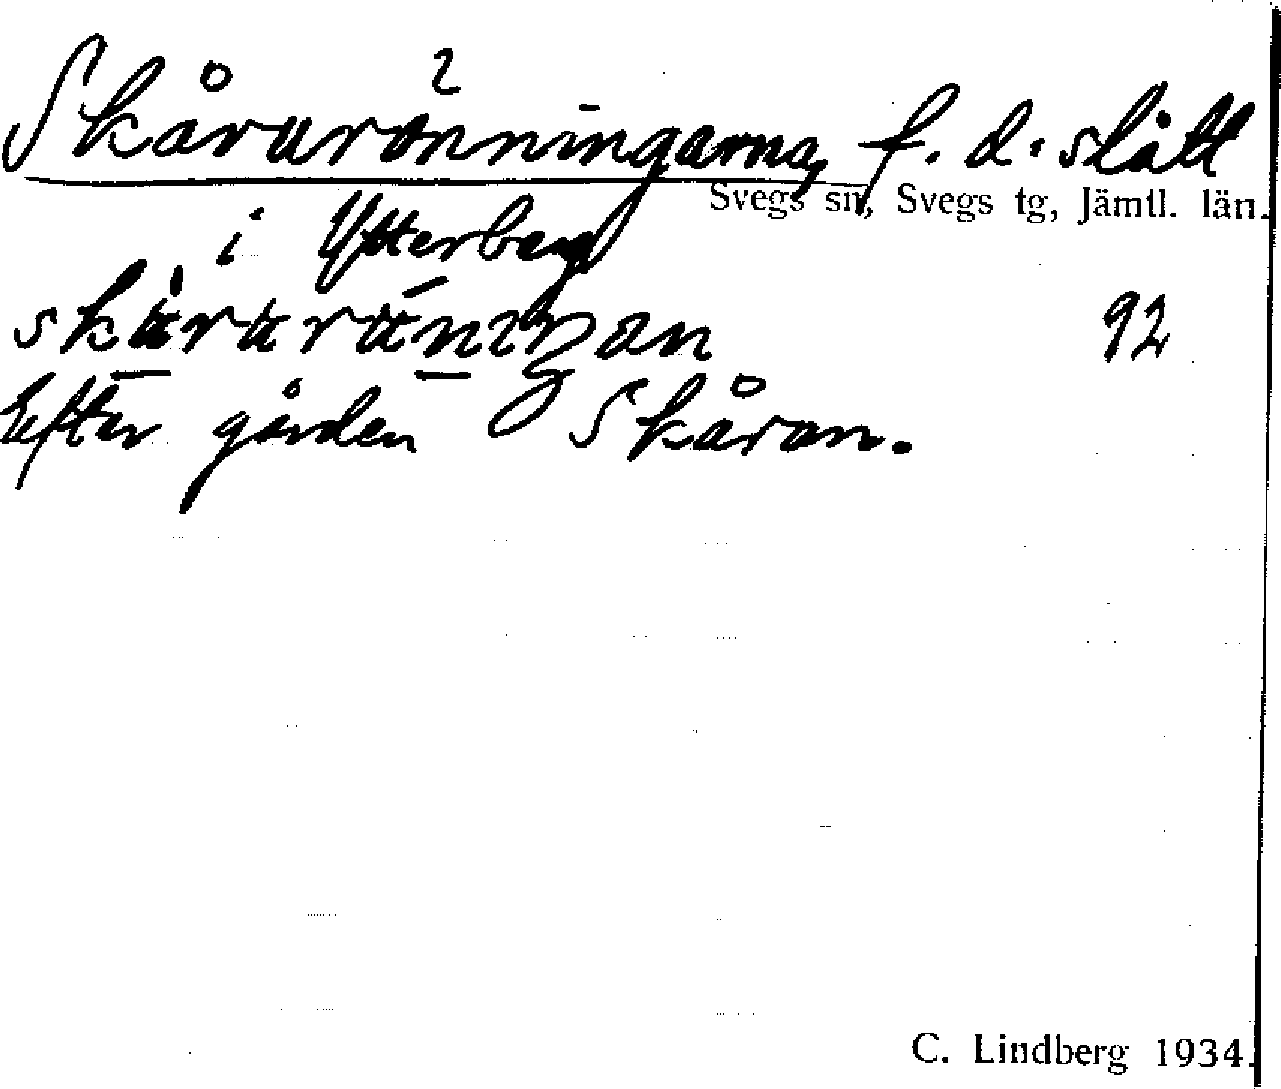 Skårurönningarna, f. d. slått
Svegs sn, Svegs tg, Jämtl. län.
i Ytterberg
92
Efter gården Skåran.
C. Lindberg 1934.